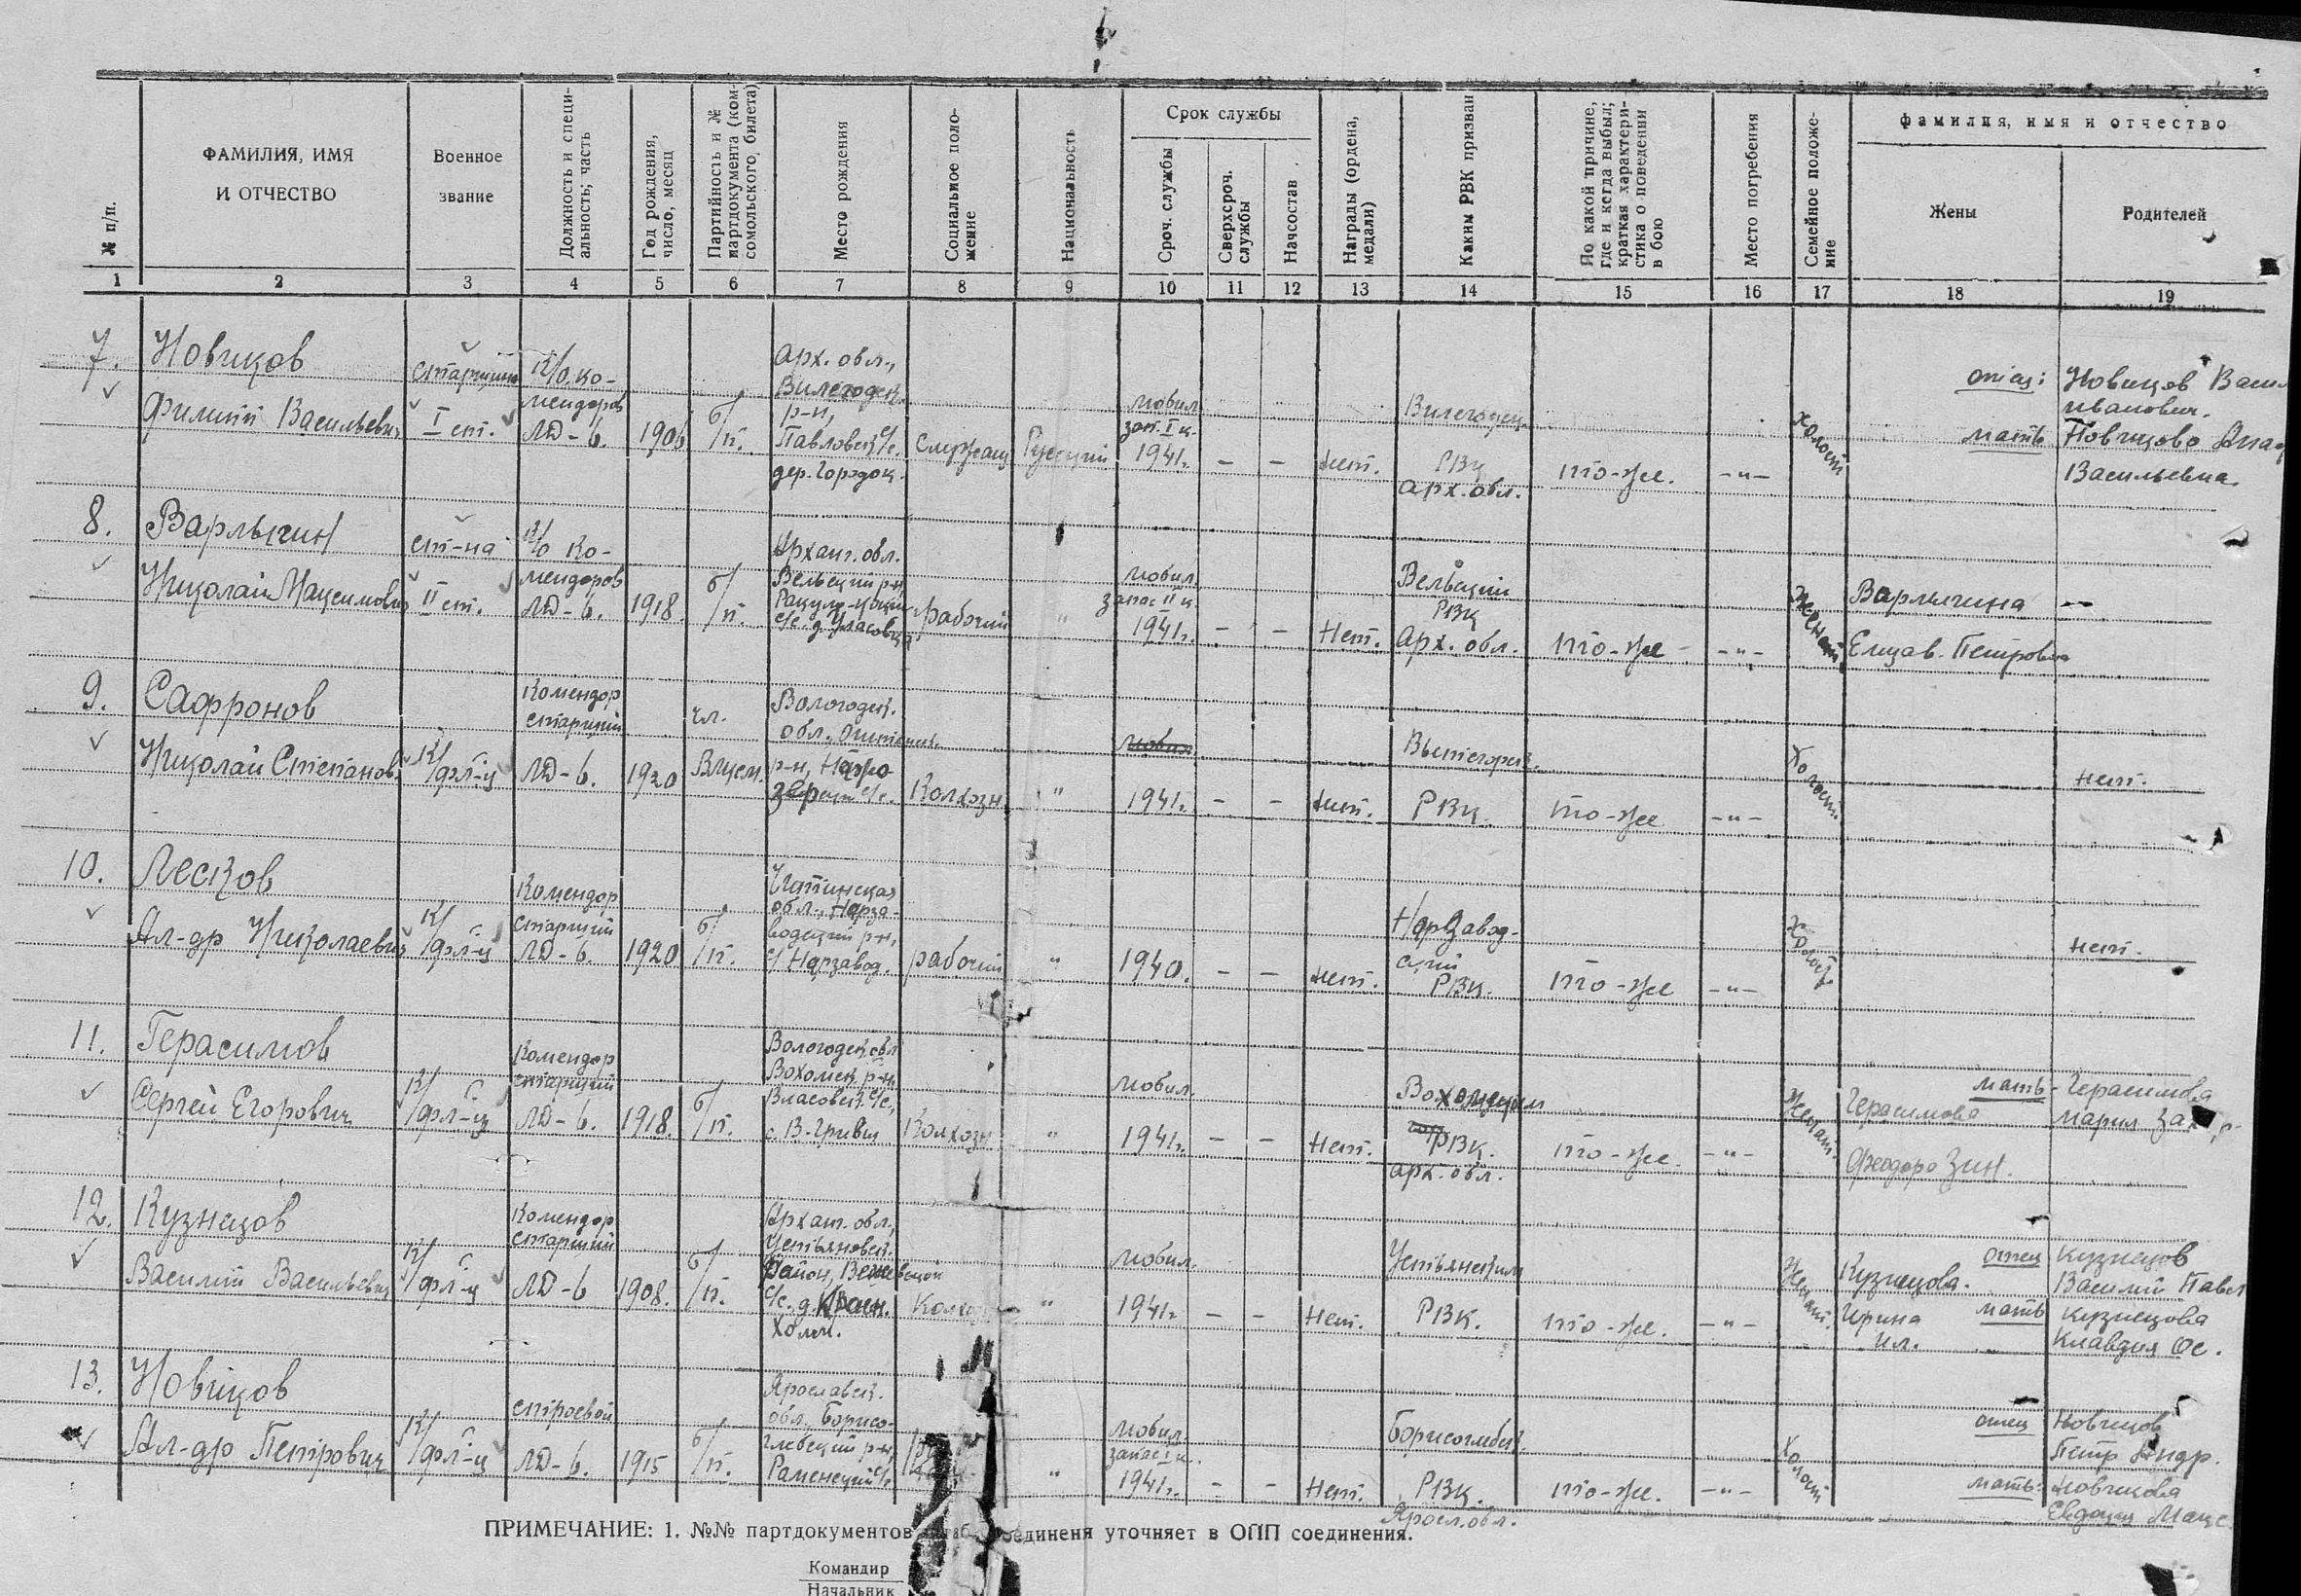 № п/п.
ФАМИЛИЯ, ИМЯ
И ОТЧЕСТВО
Военное
звание
Должность и специ-
альность; часть
Год рождения,
число, месяц
Партийность и №
партдокумента (ком-
сомольского билета)
Место рождения
Социальное поло-
жение
Национальность
Срок службы
Сроч. службы
Сверхсроч.
службы
Начсостав
Награды (ордена,
медали)
Каким РВК призван
По какой причине,
где и когда выбыл;
краткая характери-
стика о поведении
в бою
Место погребения
Семейное положе-
ние
фамилия, имя и отчество
Жены
Родителей
1 2 3 4 5 6 7 8 9 10 11 12 13 14 15 16 17 18 19
7.
Новиков
Филипп Васильевич
старшина
I ст.
К/О ко-
мендоров
ЛД-6.
1906
б/п.
Арх. обл.,
Вилегодск.
р-н,
Павловск с/с.
дер. Городок.
Служащ
Русский
мобил.
зап. I к.
1941г.
–
–
Нет.
Вилегодск.
РВК
Арх. обл.
то-же.
-"-
холост
отец:
Новиков Васил
Иванович.
мать
Новикова
Васильевна.
8.
Варлыгин
Николай Максимович
ст-на
II ст.
К/О Ко-
мендоров
ЛД-6.
1918.
б/п.
Арханг. обл.
Вельский р-н
с/с.
рабочий
"
мобил.
запас II к.
1941г.
–
–
Нет.
Вельский
РВК
Арх. обл.
то-же
-"-
Женат
Варлыгина
Елизав. Петровна
–
9.
Сафронов
Николай Степанов.
К/фл-ц
Комендор
старший
ЛД-6.
1920
чл.
Влксм.
Вологодск.
обл.
р-н,
с/с.
Колхозн.
"
мобил.
1941г.
–
–
Нет.
Вытегорск.
РВК.
то-же
-"-
Холост
нет.
10.
Лесков
Ал-др Николаевич
К/фл-ц
Комендор
старший
ЛД-6.
1920
б/п.
Читинская
обл., Нерза-
водский р-н,
с/Нерзавод.
рабочий
"
1940.
–
–
Нет.
Нерзавод-
ский
РВК.
то-же
-"-
Холост
нет.
11.
Герасимов
Сергей Егорович
К/фл-ц
Комендор
старший
ЛД-6.
1918.
б/п.
Вологодск обл
Вохомск р-н,
Власовск. с/с,
Колхозн.
"
мобил.
1941г.
–
–
Нет.
Вохомский
РВК.
арх. обл.
то-же.
-"-
Женат.
Герасимова
Феодора Зин.
мать - Герасимова
Мария
12.
Кузнецов
Василий Васильевич
К/фл-ц
Комендор
старший
ЛД-6
1908.
б/п.
Арханг. обл.,
Устьяновск.
Район,
с/с. д. Красн.
Холм.
Колхозн
"
мобил.
1941г
–
–
Нет.
Устьянский
РВК.
то-же.
-"-
Женат.
Кузнецова.
Ирина
Ил.
отец
Кузнецов
Василий Павл
мать
Кузнецова
Клавдия Ос.
13.
Новиков
Ал-др Петрович
К/фл-ц
строевой
ЛД-6.
1915
б/п.
Ярославск.
обл., Борисо-
глебский р-н,
Раменский с/с
"
мобил.
запас I к.
1941г.
–
–
Нет.
Борисоглебск.
РВК.
Яросл. обл.
то-же.
-"-
Холост
отец
Новиков
Петр Андр.
мать:
Новикова
Евдокия Макс.
ПРИМЕЧАНИЕ: 1. №№ партдокументов штаб соединеня уточняет в ОПП соединения.
Командир
Начальник